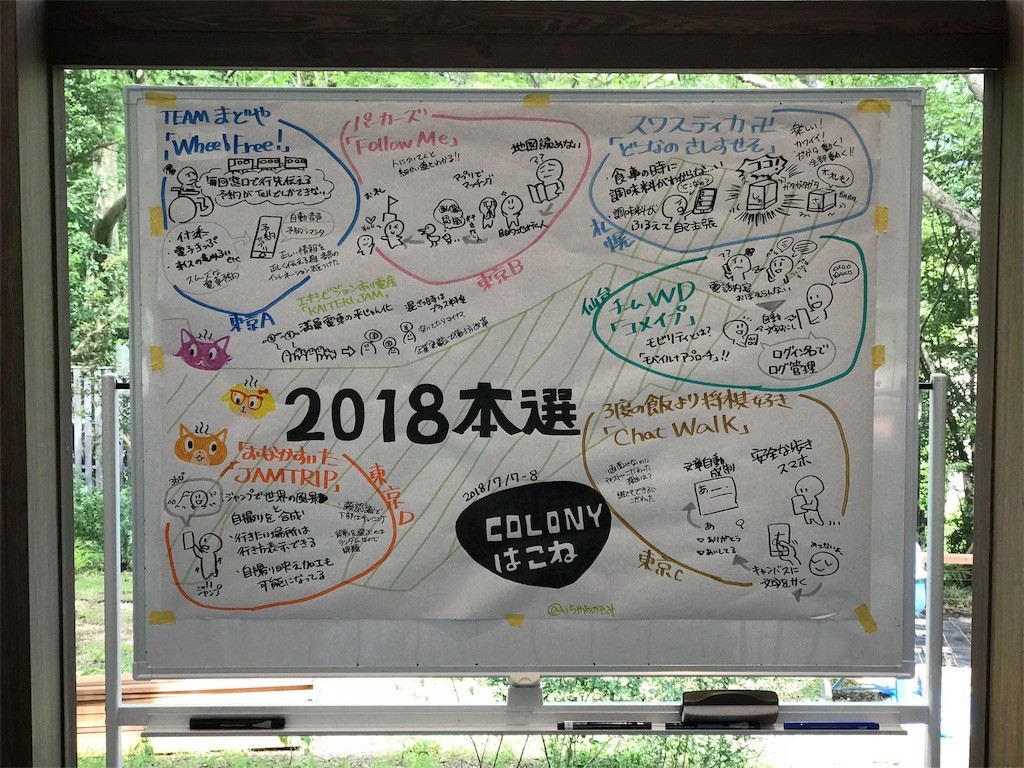 TEAM まどや
「Wheel Free!」
毎回窓口で行先伝える
予約が Tell でしかできない
付添
電子きっぷ
スムーズな
電車予約
自動音声
正しい情報を
東京A
パーカーズ
「Follow Me」
地図読めない
??
アプリで
マッチング
お礼
東京B
スワスティカ卍
「どーなの さしすせそ」
食事の時に
調味料がわからない
調味料が
ふるえて自主張
楽しい!
カワイイ!
だから動く!
全部動く!!
ガタガタガタ
オレも!
札幌
エキシビション
「KAITEKI JAM」
満員電車の平じゅん化
混でる時は
プラス料金
仙台
チーム WD
「コメイプ」
電話内容
おぼえらんない
モビリティとは?
「モバイルアプローチ」!!
ログイン名で
ログ管理
2018本選
2018/7/7-8
COLONY
はこね
「おなかすいた」
「JAMTRIP」
360°
ジャンプで世界の風景
と
自撮りを合成!
・行きたい場所は
行き方表示できる
・自撮り映え加工も
可能になってる
ジャンプ
東京D
3度の飯より将棋好き
「Chat Walk」
文章自動
安全な歩き
スマホ
あ
♥ ありがとう
♥ あいしてる
キャンバスに
文字をかく
東京C